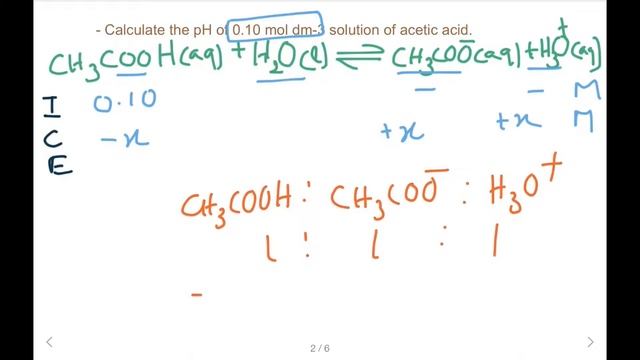 - Calculate the pH of 0.10 mol dm-3 solution of acetic acid.
CH₃COOH(aq) + H₂O(l) ⇌ CH₃COO⁻(aq) + H₃O⁺(aq)
I 0.10 – – M
C -x +x +x M
E
CH₃COOH : CH₃COO⁻ : H₃O⁺
1 : 1 : 1
-
2 / 6